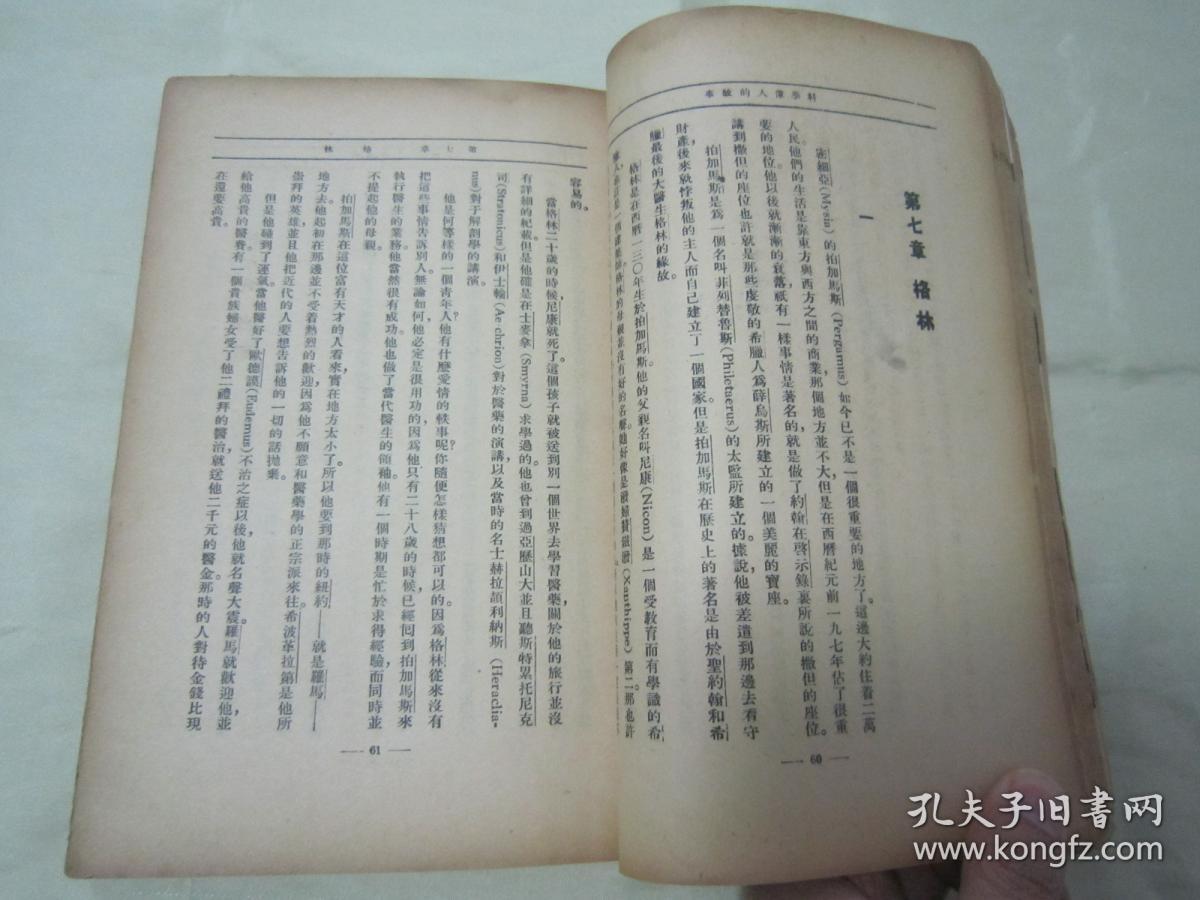 科學偉人的故事
第七章 格林
一
密細亞(Mysia)的拍加馬斯(Pergamus)如今已不是一個很重要的地方了。這邊大約住着二萬
人民。他們的生活是靠東方與西方之間的商業。那個地方並不大但是在西曆紀元前一九七年佔了很重
要的地位。他以後就漸漸的衰落。祇有一樣事情是著名的,就是做了約翰在啓示錄裏所說的撒但的座位。
講到撒但的座位也許就是那些虔敬的希臘人爲薛烏斯所建立的一個美麗的寶座。
拍加馬斯是爲一個名叫菲列替魯斯(Philetaerus)的太監所建立的。據說他被差遣到那邊去看守
財產後來就悖叛他的主人而自己建立了一個國家。但是拍加馬斯在歷史上的著名是由於聖約翰和希
臘最後的大醫生格林的緣故。
格林是在西曆一三〇年生於拍加馬斯。他的父親名叫尼康(Nicon)是一個受教育而有學識的希
格林的母親並沒有好的名聲。她好像是潑婦贊狄潑(Xanthippe)第二。那也許
— 60 —
第七章 格林
容易的。
當格林二十歲的時候尼康就死了。這個孩子就被送到別一個世界去學習醫藥,關於他的旅行並沒
有詳細的紀載但是他確是在士麥拿(Smyrna)求學過的。他也曾到過亞歷山大並且聽斯特累托尼克
司(Stratonicus)和伊士輪(Ae chrion)對於醫藥的演講,以及當時的名士赫拉頡利納斯(Heraclia-
nus)對于解剖學的講演。
他是何等樣的一個青年人?他有什麼愛情的軼事呢?你隨便怎樣猜想都可以的。因爲格林從來沒有
把這些事情告訴別人。無論如何他必定是很用功的,因爲他只有二十八歲的時候已經回到拍加馬斯來
執行醫生的業務。他當然很有成功。他也做了當代醫生的領袖。他有一個時期是忙於求得經驗而同時並
不提起他的母親。
拍加馬斯在這位富有天才的人看來,實在地方太小了。所以他要到那時的紐約——就是羅馬——
地方去。他起初在那邊並不受着熱烈的歡迎,因爲他不願意和醫藥學的正宗派來往。希波革拉第是他所
崇拜的英雄並且他把近代的人要想告訴他的一切的話拋棄。
但是他碰到了運氣。當他醫好了歐德謨(Eudemus)不治之症以後,他就名聲大震。羅馬就歡迎他並
給他高貴的醫費。有一個貴族婦女受了他二禮拜的醫治,就送他二千元的醫金。那時的人對待金錢比現
在還要高貴。
— 61 —
孔夫子旧书网
www.kongfz.com